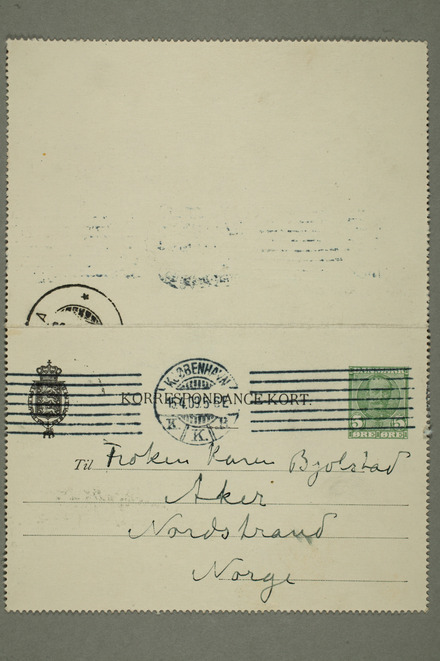 A
KJØBENHAVN
KORRESPONDANCE-KORT.
K. K. B
5 ØRE ØRE 5
Til Frøken Karen Bjølstad
Aker
Nordstrand
Norge